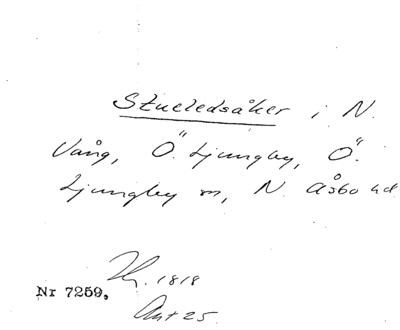 Stueledsåker i N.
Vång, Ö. Ljungby, Ö.
Ljungby sn, N. Åsbo hd
1818
Nr 7259,
Akt 25